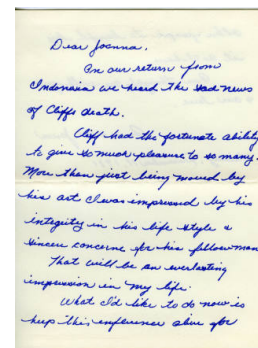 Dear Joanna,
On our return from
Indonasia we heard the sad news
of Cliffs death.
Cliff had the fortunate ability
to give so much pleasure to so many.
More than just being moved by
his art I was impressed by his
integrity in his life style &
sincere concerne for his fellow man
That will be an everlasting
impression in my life.
What I'd like to do now is
keep this influence alive for